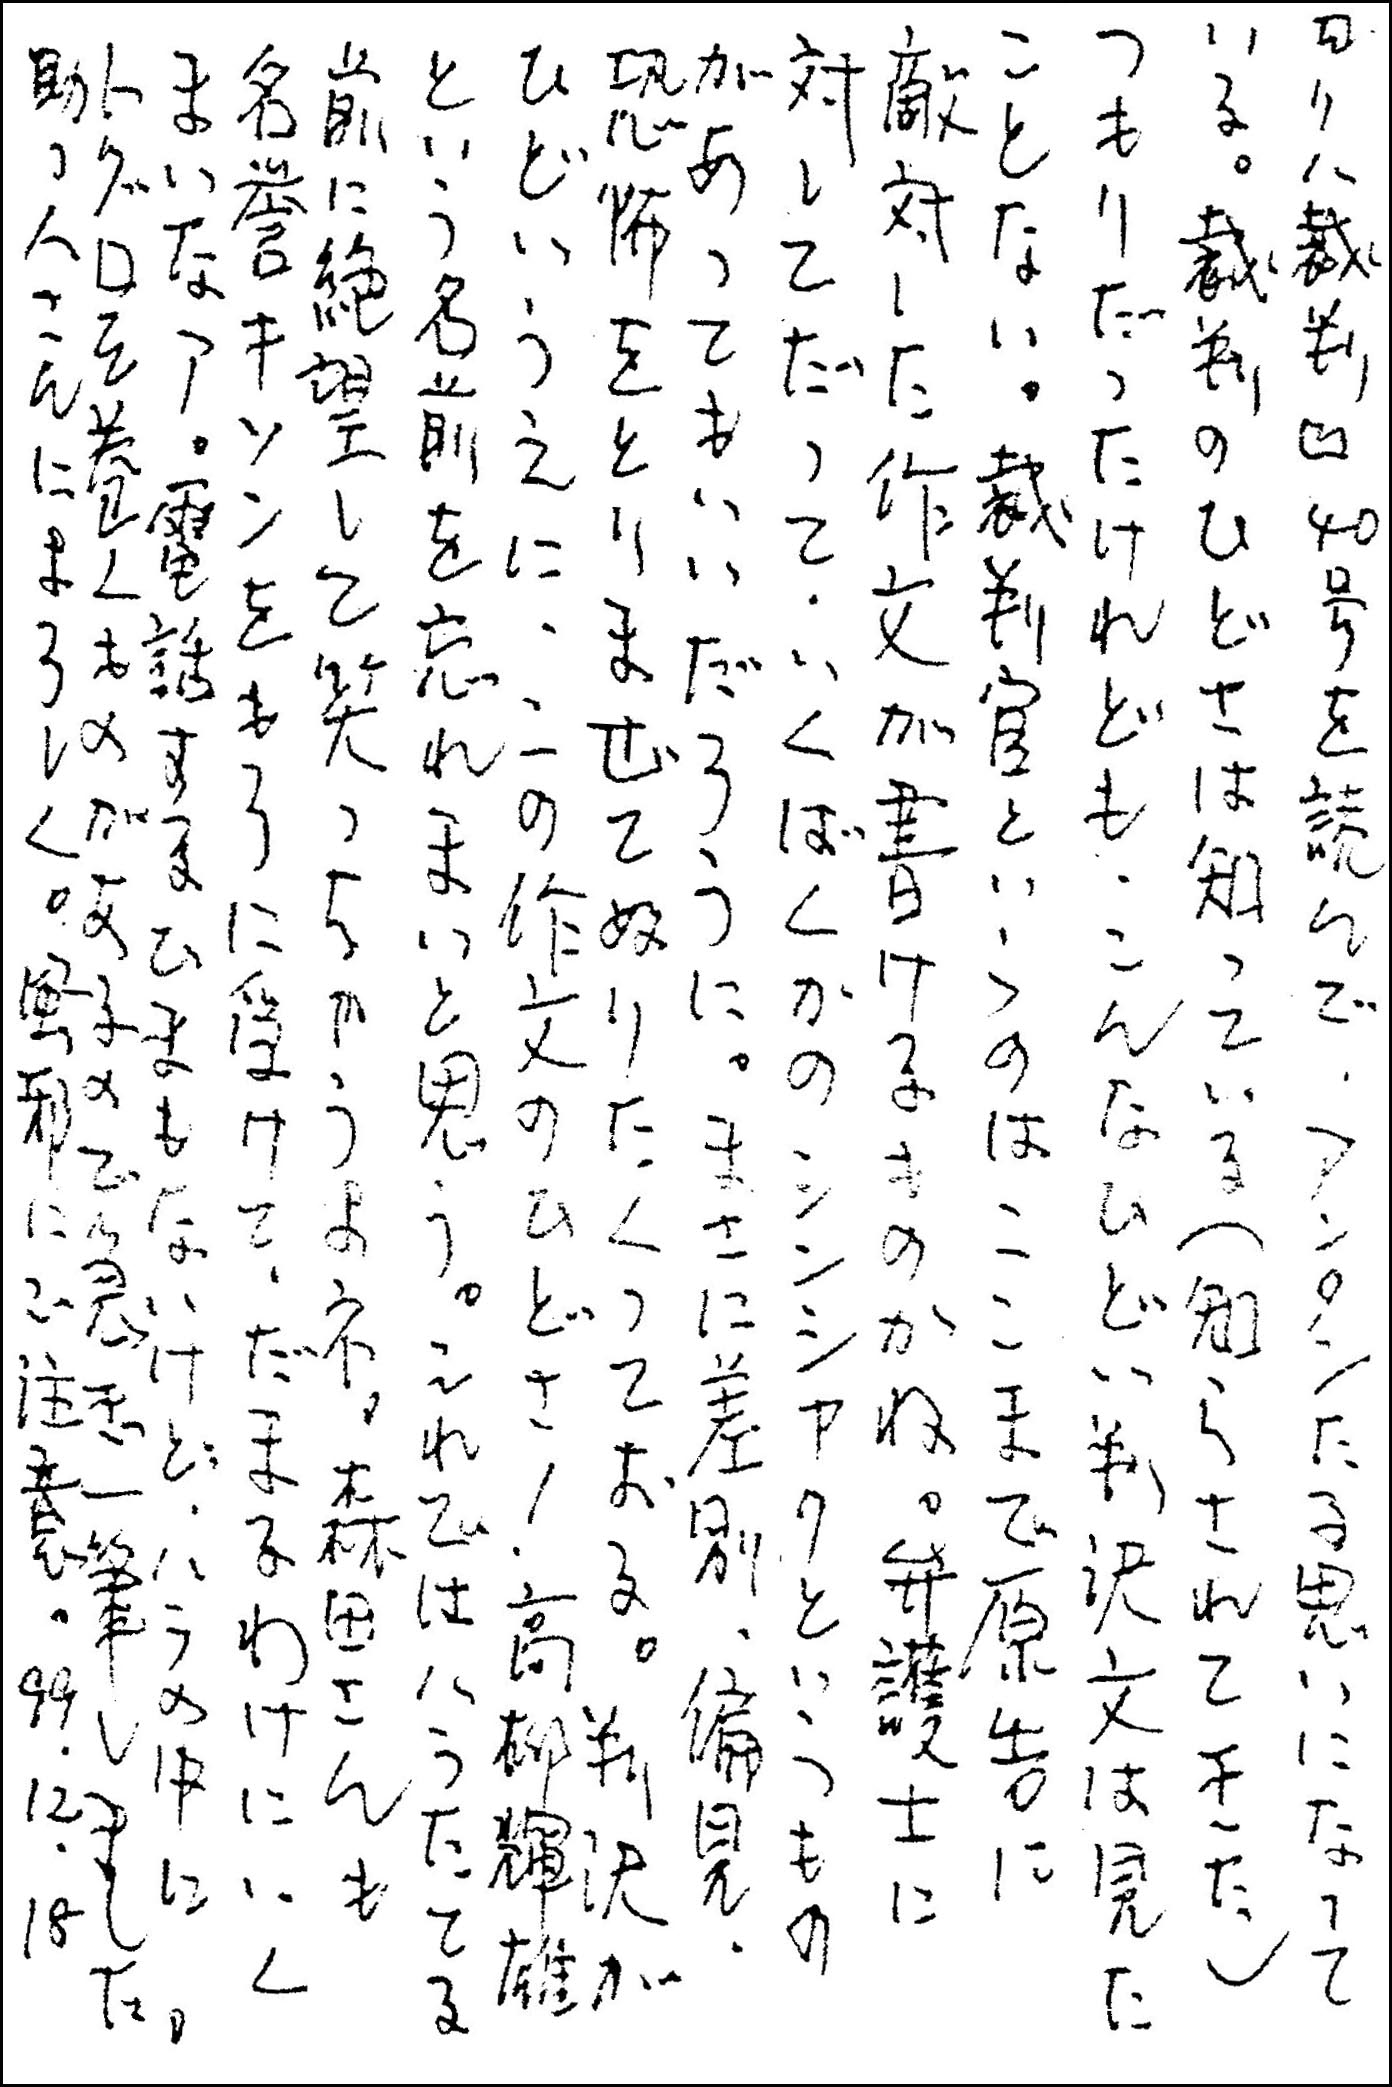 裁判凶40号を読んで、アンタンたる思いになって
いる。裁判のひどさは知っている(知らされてきた)
つもりだったけれども、こんなひどい判決文は見た
ことない。裁判官というのはここまで原告に
敵対した作文が書けるものかね。弁護士に
対してだって、いくばくかのシンシャクというもの
があってもいいだろうに。まさに差別、偏見、
恐怖をとりまぜてぬりたくっておる。判決が
ひどいうえに、この作文のひどさ!高柳輝雄
という名前を忘れまいと思う。それではハラたてる
前に絶望して笑っちゃうよネ。森田さんも
名誉キソンをもろに受けて、だまるわけにいく
まいなア。電話するひまもないけど、ハラの中に
トグロを巻くものがあるので急ぎ一筆しました。
助っ人さんによろしく。風邪にご注意。99.12.18